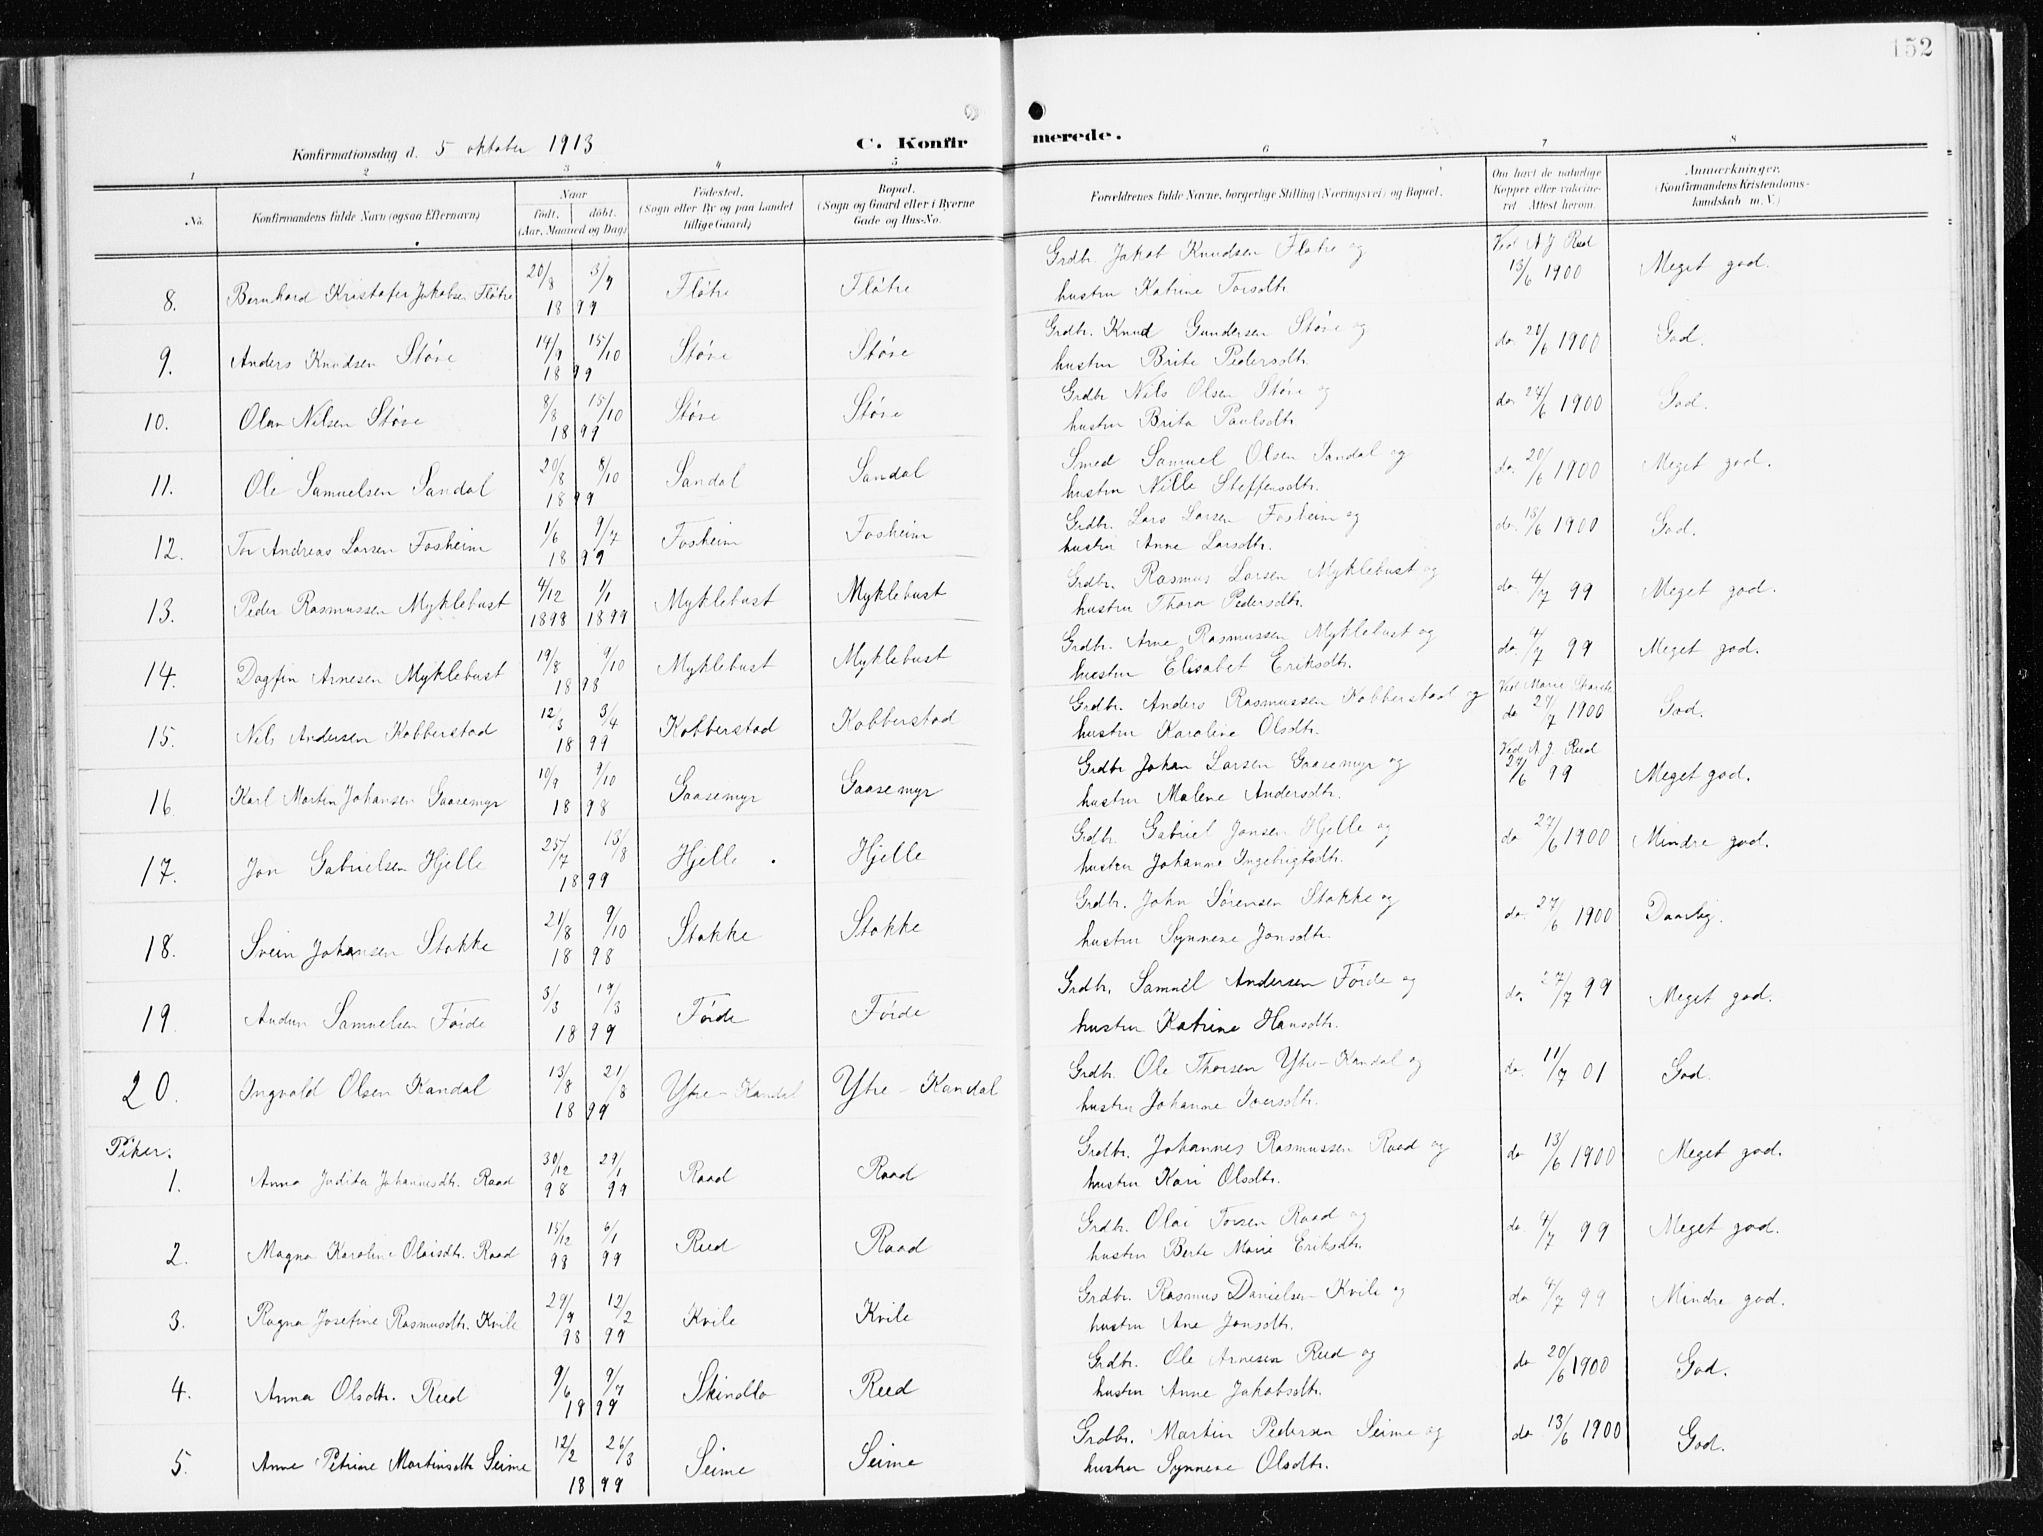 152
Konfirmationsdag d. 5 oktober 1913
C. Konfirmerede.
1 2 3 4 5 6 7 8
No. Konfirmandens fulde Navn (ogsaa Efternavn) Naar født. døbt. (Aar, Maaned og Dag) Fødested. (Sogn eller By og paa Landet tillige Gaard) Bopæl. (Sogn og Gaard eller i Byerne Gade og Hus-No. Forældrenes fulde Navne, borgerlige Stilling (Næringsvei) og Bopæl. Om havt de naturlige Kopper eller vakcineret. Attest herom. Anmærkninger. (Konfirmandens Kristendomskundskab m. V.)
8. Bernhard Kristofer Jakobsen Fløtre 20/8 3/9 1899 Fløtre Fløtre Grdbr. Jakob Knudsen Fløtre og hustru Katrine Torsdtr. Ved A. J. Reed 13/6 1900 Meget god.
9. Anders Knudsen Støve 14/9 15/10 1899 Støve Støve Grdbr. Knud Gundersen Støve og hustru Brite Pedersdtr. do 20/6 1900 God.
10. Olav Nilsen Støve 8/8 15/10 1899 Støve Støve Grdbr Nils Olsen Støve og hustru Brita Paulsdtr. do 27/6 1900 God.
11. Ole Samuelsen Sandal 20/8 8/10 1899 Sandal Sandal Smed Samuel Olsen Sandal og hustru Nille Steffensdtr. do 20/6 1900 Meget god.
12. Tor Andreas Larsen Fosheim 1/6 9/7 1899 Fosheim Fosheim Grdbr. Lars Larsen Fosheim og hustru Anne Larsdtr. do. 15/6 1900 God.
13. Peder Rasmussen Myklebust 4/12 1898 1/1 1899 Myklebust Myklebust Grdbr. Rasmus Larsen Myklebust og hustru Thora Pedersdtr. do 4/7 99 Meget god.
14. Dagfin Arnesen Myklebust 19/8 9/10 1898 Myklebust Myklebust Grdbr. Arne Rasmussen Myklebust og hustru Elisabet Eriksdtr. do 4/7 99 Meget god.
15. Nils Andersen Kobberstad 12/3 3/4 1899 Kobberstad Kobberstad Grdbr. Anders Rasmussen Kobberstad og hustru Karoline Olsdtr. Ved Marie do 27/7 1900 God.
16. Karl Martin Johansen Gaasemyr 10/9 9/10 1898 Gaasemyr Gaasemyr Grdbr Johan Larsen Gaasemyr og hustru Malene Andersdtr. Ved A. J. Reed 27/6 99 Meget god.
17. Jon Gabrielsen Hjelle 25/7 13/8 1899 Hjelle. Hjelle Grdbr. Gabriel Jonsen Hjelle og hustru Johanne Ingebrigtsdtr. do 27/6 1900 Mindre god.
18. Svein Johansen Stokke 21/8 9/10 1898 Stokke Stokke Grdbr. John Sørensen Stokke og hustru Synneve Jonsdtr. do. 27/6 1900 Daarlig.
19. Audun Samuelsen Førde 3/3 19/3 1899 Førde Førde Grdbr. Samuel Andersen Førde og hustru Katrine Hansdtr. do. 27/7 99 Meget god.
20. Ingvald Olsen Kandal 13/8 21/8 1899 Ytre-Kandal Ytre-Kandal Grdbr. Ole Thorsen Ytre-Kandal og hustru Johanne Iversdtr. do. 11/7 01 God.
Piker.
1. Anna Judita Johannesdtr. Raad 30/12 98 29/1 99 Raad Raad Grdbr. Johannes Rasmussen Raad og hustru Kari Olsdtr. do 13/6 1900 Meget god.
2. Magna Karoline Olaisdtr. Raad 15/12 98 6/1 99 Reed Raad Grdbr. Olai Torsen Raad og hustru Berte Marie Eriksdtr. do. 4/7 99 Meget god.
3. Ragna Josefine Rasmusdtr. Kvile 29/9 98 12/2 99 Kvile Kvile Grdbr. Rasmus Danielsen Kvile og hustru Ane Jonsdtr. do 4/7 99 Mindre god.
4. Anna Olsdtr. Reed 9/6 9/7 1899 Skindlo Reed Grdbr. Ole Arnesen Reed og hustru Anne Jakobsdtr. do 20/6 1900 God.
5. Anne Petrine Martinsdtr Seime 12/2 26/3 1899 Seime Seime Grdbr. Martin Pedersen Seime og hustru Synneve Olsdtr. do 13/6 1900 God.